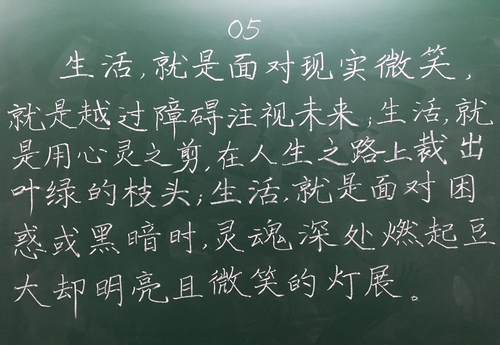 05
生活,就是面对现实微笑,
就是越过障碍注视未来;生活,就
是用心灵之剪,在人生之路上裁出
叶绿的枝头;生活,就是面对困
惑或黑暗时,灵魂深处燃起豆
大却明亮且微笑的灯展。